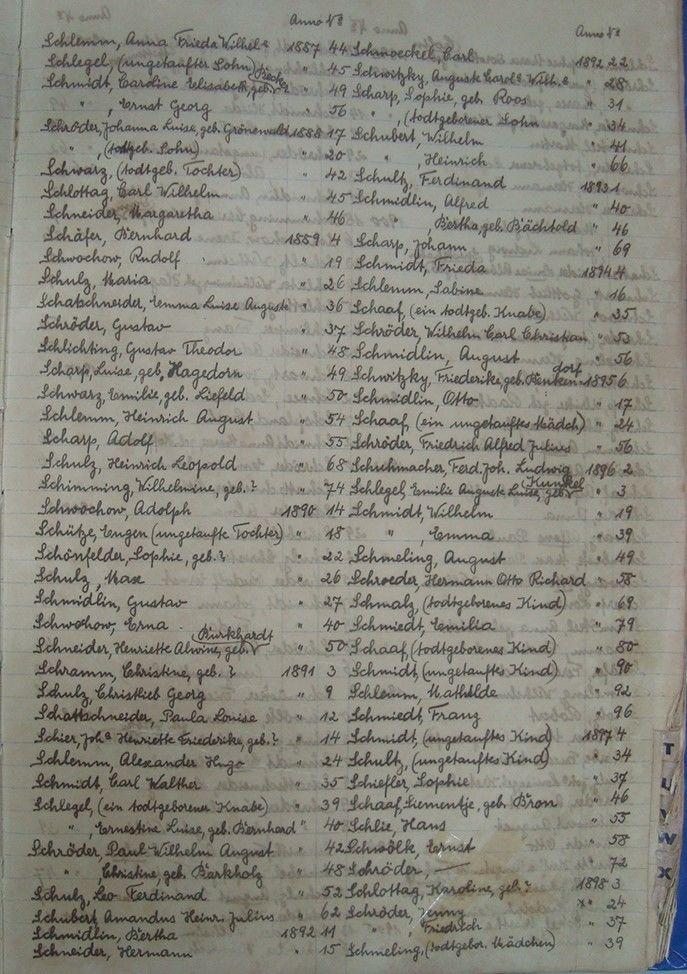 Anno No
Schlemm, Anna Frieda Wilhel a 1887 44
Schlegel, (ungetaufter Sohn) " 45
Schmidt, Caroline Elisabeth, geb. " 49
" , Ernst Georg " 56
Schröder, Johanna Luise, geb. Grönewald 1888 17
" , (todtgeb. Sohn) " 20
Schwarz, (todtgeb. Tochter) " 42
Schlottag, Carl Wilhelm " 45
Schneider, Margaretha " 46
Schäfer, Bernhard 1889 4
Schwochow, Rudolf " 19
Schulz, Maria " 26
Schatschneider, Emma Luise Auguste " 36
Schröder, Gustav " 37
Schlichting, Gustav Theodor " 48
Scharp, Luise, geb. Hagedorn " 49
Schwarz, Emilie, geb. Liefeld " 50
Schlemm, Heinrich August " 54
Scharp, Adolf " 55
Schulz, Heinrich Leopold " 68
Schimming, Wilhelmine, geb. ? " 74
Schwochow, Adolph 1890 14
Schütze, Eugen (ungetaufte Tochter) " 18
Schönfelder, Sophie, geb. ? " 22
Schulz, Max " 26
Schmidlin, Gustav " 27
Schwochow, Erna " 40
Schneider, Henriette Alwine, geb. Burkhardt " 50
Schramm, Christine, geb. ? 1891 3
Schulz, Christlieb Georg " 9
Schattschneider, Paula Louise " 12
Schier, Joh a Henriette Friederike, geb. ? " 14
Schlemm, Alexander Hugo " 24
Schmidt, Carl Walther " 35
Schlegel, (ein todtgeborener Knabe) " 39
" , Ernestine Luise, geb. Bernhard " 40
Schröder, Paul Wilhelm August " 42
" Christine, geb. Barkholz " 48
Schulz, Leo Ferdinand " 52
Schubert, Amandus Heinr. Julius " 62
Schmidlin, Bertha 1892 11
Schneider, Hermann " 15
Anno No
Schmoeckel, Carl 1892 22
Schwitzky, Auguste Carol e Wilh. e " 28
Scharp, Sophie, geb. Roos " 31
" , (todtgeborener Sohn " 34
Schubert, Wilhelm " 41
" , Heinrich " 66
Schultz, Ferdinand 1893 1
Schmidlin, Alfred " 40
" , Bertha, geb. Bächtold " 46
Scharp, Johann " 69
Schmidt, Frieda 1894 4
Schlemm, Sabine " 16
Schaaf, (ein todtgeb. Knabe) " 35
Schröder, Wilhelm Carl Christian " 53
Schmidlin, August " 56
Schwitzky, Friederike, geb. Benkendorf 1895 6
Schmidlin, Otto " 17
Schaaf, (ein ungetauftes Mädch) " 24
Schröder, Friedrich Alfred Julius " 56
Schuhmacher, Ferd. Joh. Ludwig 1896 2
Schlegel, Emilie Auguste Luise, geb. Kunkel " 3
Schmidt, Wilhelm " 19
" , Emma " 39
Schmeling, August " 49
Schroeder, Hermann Otto Richard " 58
Schmalz, (todtgeborenes Kind) " 69
Schmiedt, Emilia " 79
Schaaf (todtgeborenes Kind) " 80
Schmidt (ungetauftes Kind) " 90
Schlemm, Mathilde " 92
Schmiedt, Franz " 96
Schmidt, (ungetauftes Kind) 1897 4
Schultz, (ungetauftes Kind) " 34
Schiefler, Sophie " 37
Schaaf, Siementje, geb. Bron " 46
Schlie, Hans " 55
Schwölk, Ernst " 58
Schröder, — " 72
Schlottag, Karoline, geb. ? 1898 3
Schröder, Jenny " 24
" , Friedrich " 37
Schmeling, (todtgebor. Mädchen) " 39
T
U
V
W
X